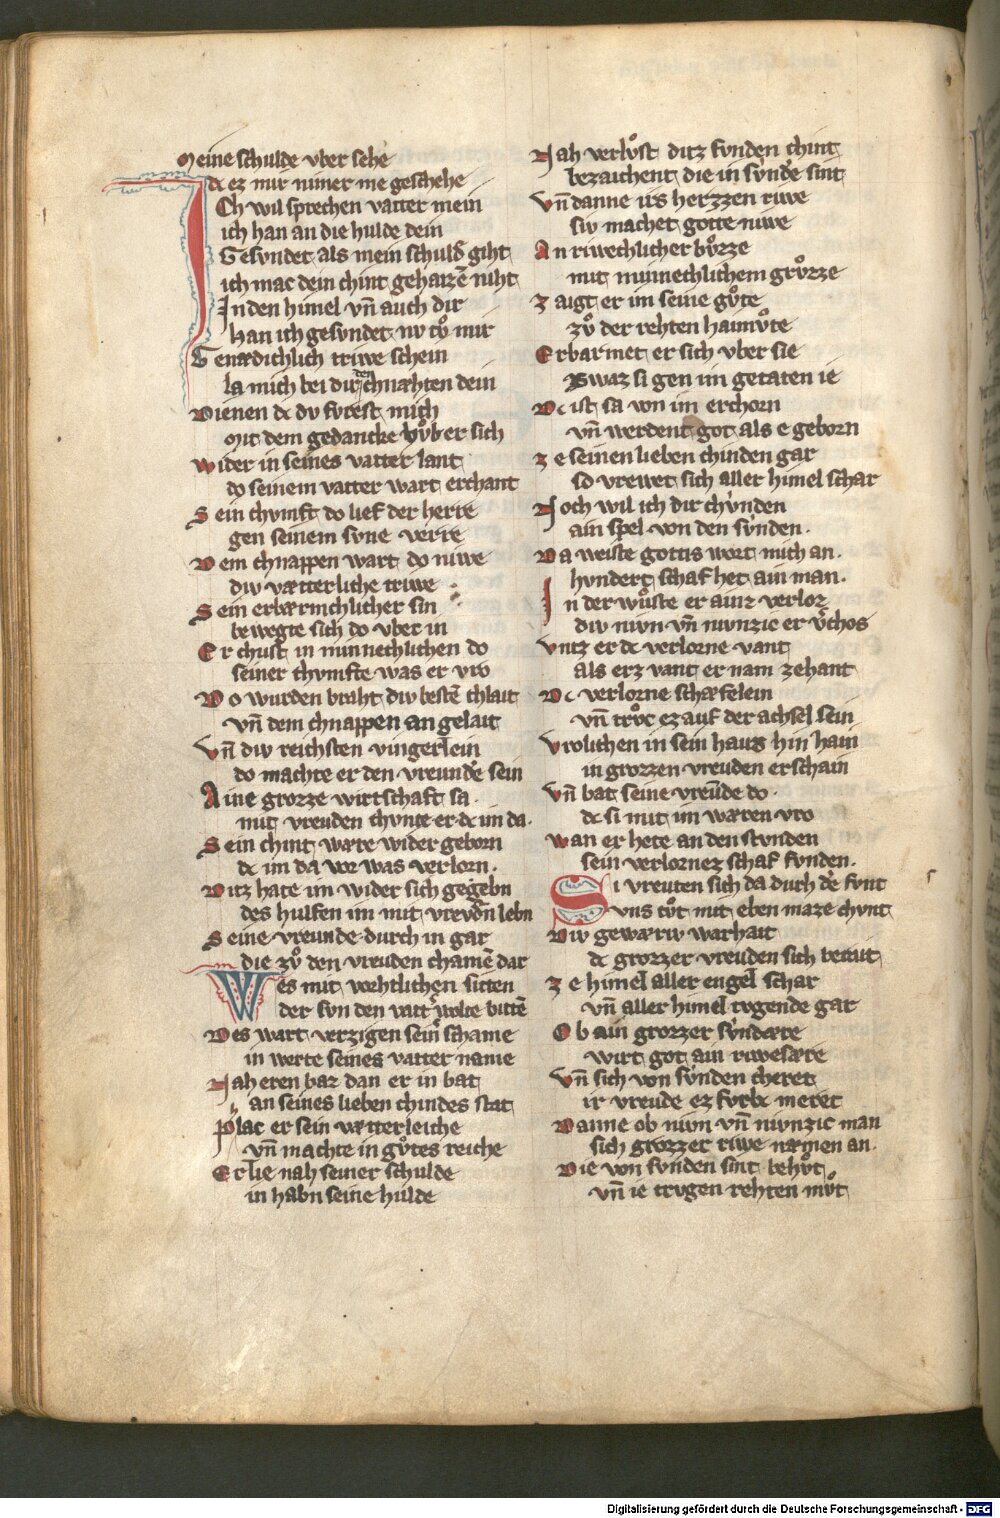 Meine schulde vber sehe
dc ez mir nimer me geschehe
ICh wil sprechen vatter mein
ich han an die hulde dein
Gesvndet als mein schuld giht
ich mac dein chint gehaizē niht
In den himel vn̄ auch dir
han ich gesvndet nv tv̊ mir
Genædichlich triwe schein
la mich bei dirren chnæhten dein
Dienen dc dv fvrest mich
Mit dem gedancke hv̊b er sich
wider in seines vatter lant
do seinem vatter wart erchant
Sein chvmft do lief der herre
gen seinem svne verre
Dem chnappen wart do niwe
div vætterliche triwe
Sein erbærmchlicher sin
bewegte sich do vber in
Er chust in minnechlichen do
seiner chvmfte was er vro
Do wurden braht div bestē chlait
vn̄ dem chnappen an gelait
Vn̄ div reichsten vingerlein
do machte er den vreunde sein
Aine grozze wirtschaft sa
mit vreuden chvnte er dc im da.
Sein chint wære wider geborn
dc im da vor was verlorn.
Ditz hate im wider sich gegebn
des hulfen im mit vrevdn lebn
Seine vreunde durch in gar
die zv̊ den vreuden chamē dar
Wes mit væhtlichen sitten
der svn den vatter wolte bittē
Des wart verzigen sein schame
in werte seines vatter name
Jah eren baz dan er in bat
an seines lieben chindes stat
Pflac er sein vætterleiche
vn̄ machte in gv̊tes reiche
Er lie nah seiner schulde
in habn seine hulde
Jah verlv̊st ditz fvnden chint
bezaichent die in svnde sint
Vn̄ danne ir's hertzzen riwe
siv machet gotte niwe
An riwechlicher bv̊zze
mit minnechlichem grv̊zze
Zaigt er im seine gv̊te
zv̊ der rehten haimv̊te
Erbarmet er sich vber sie
Swaz si gen im getaten ie
Dc ist sa von im erchorn
vn̄ werdent got als e geborn
Ze seinen lieben chinden gar
so vrewet sich aller himel schar
Joch wil ich dir chvnden
ain spel von den svnden.
Da weiste gottis wort mich an.
hvndert schaf het ain man.
In der wv̊ste er ainz verloz
div nivn vn̄ nivnzic er v̊chos
vntz er dc verlorne vant
als erz vant er nam zehant
Dc verlorne schæfelein
vn̄ trv̊c ez auf der achsel sein
Vrolichen in sein haus hin hain
in grozzen vreuden er schain
Vn̄ bat seine vreūde do
dc si mit im wæren vro
wan er hete an den stvnden
sein verlornez schaf fvnden.
Si vreuten sich da durch de fvnt
vns tv̊t mit eben maze chvnt
Div gewæriv warhait
dc grozzer vreuden sich berait
Ze himel aller engel schar
vn̄ aller himel tvgende gar
Ob ain grozzer svndære
wirt got ain riwesære
Vn̄ sich von svnden cheret
ir vreude ez fvrbc meret
Danne ob nivn vn̄ nivnzic man
sich grozzer riwe næmen an.
Die von svnden sint behv̊t
vn̄ ie trvgen rehten mv̊t
Digitalisierung gefördert durch die Deutsche Forschungsgemeinschaft - DFG